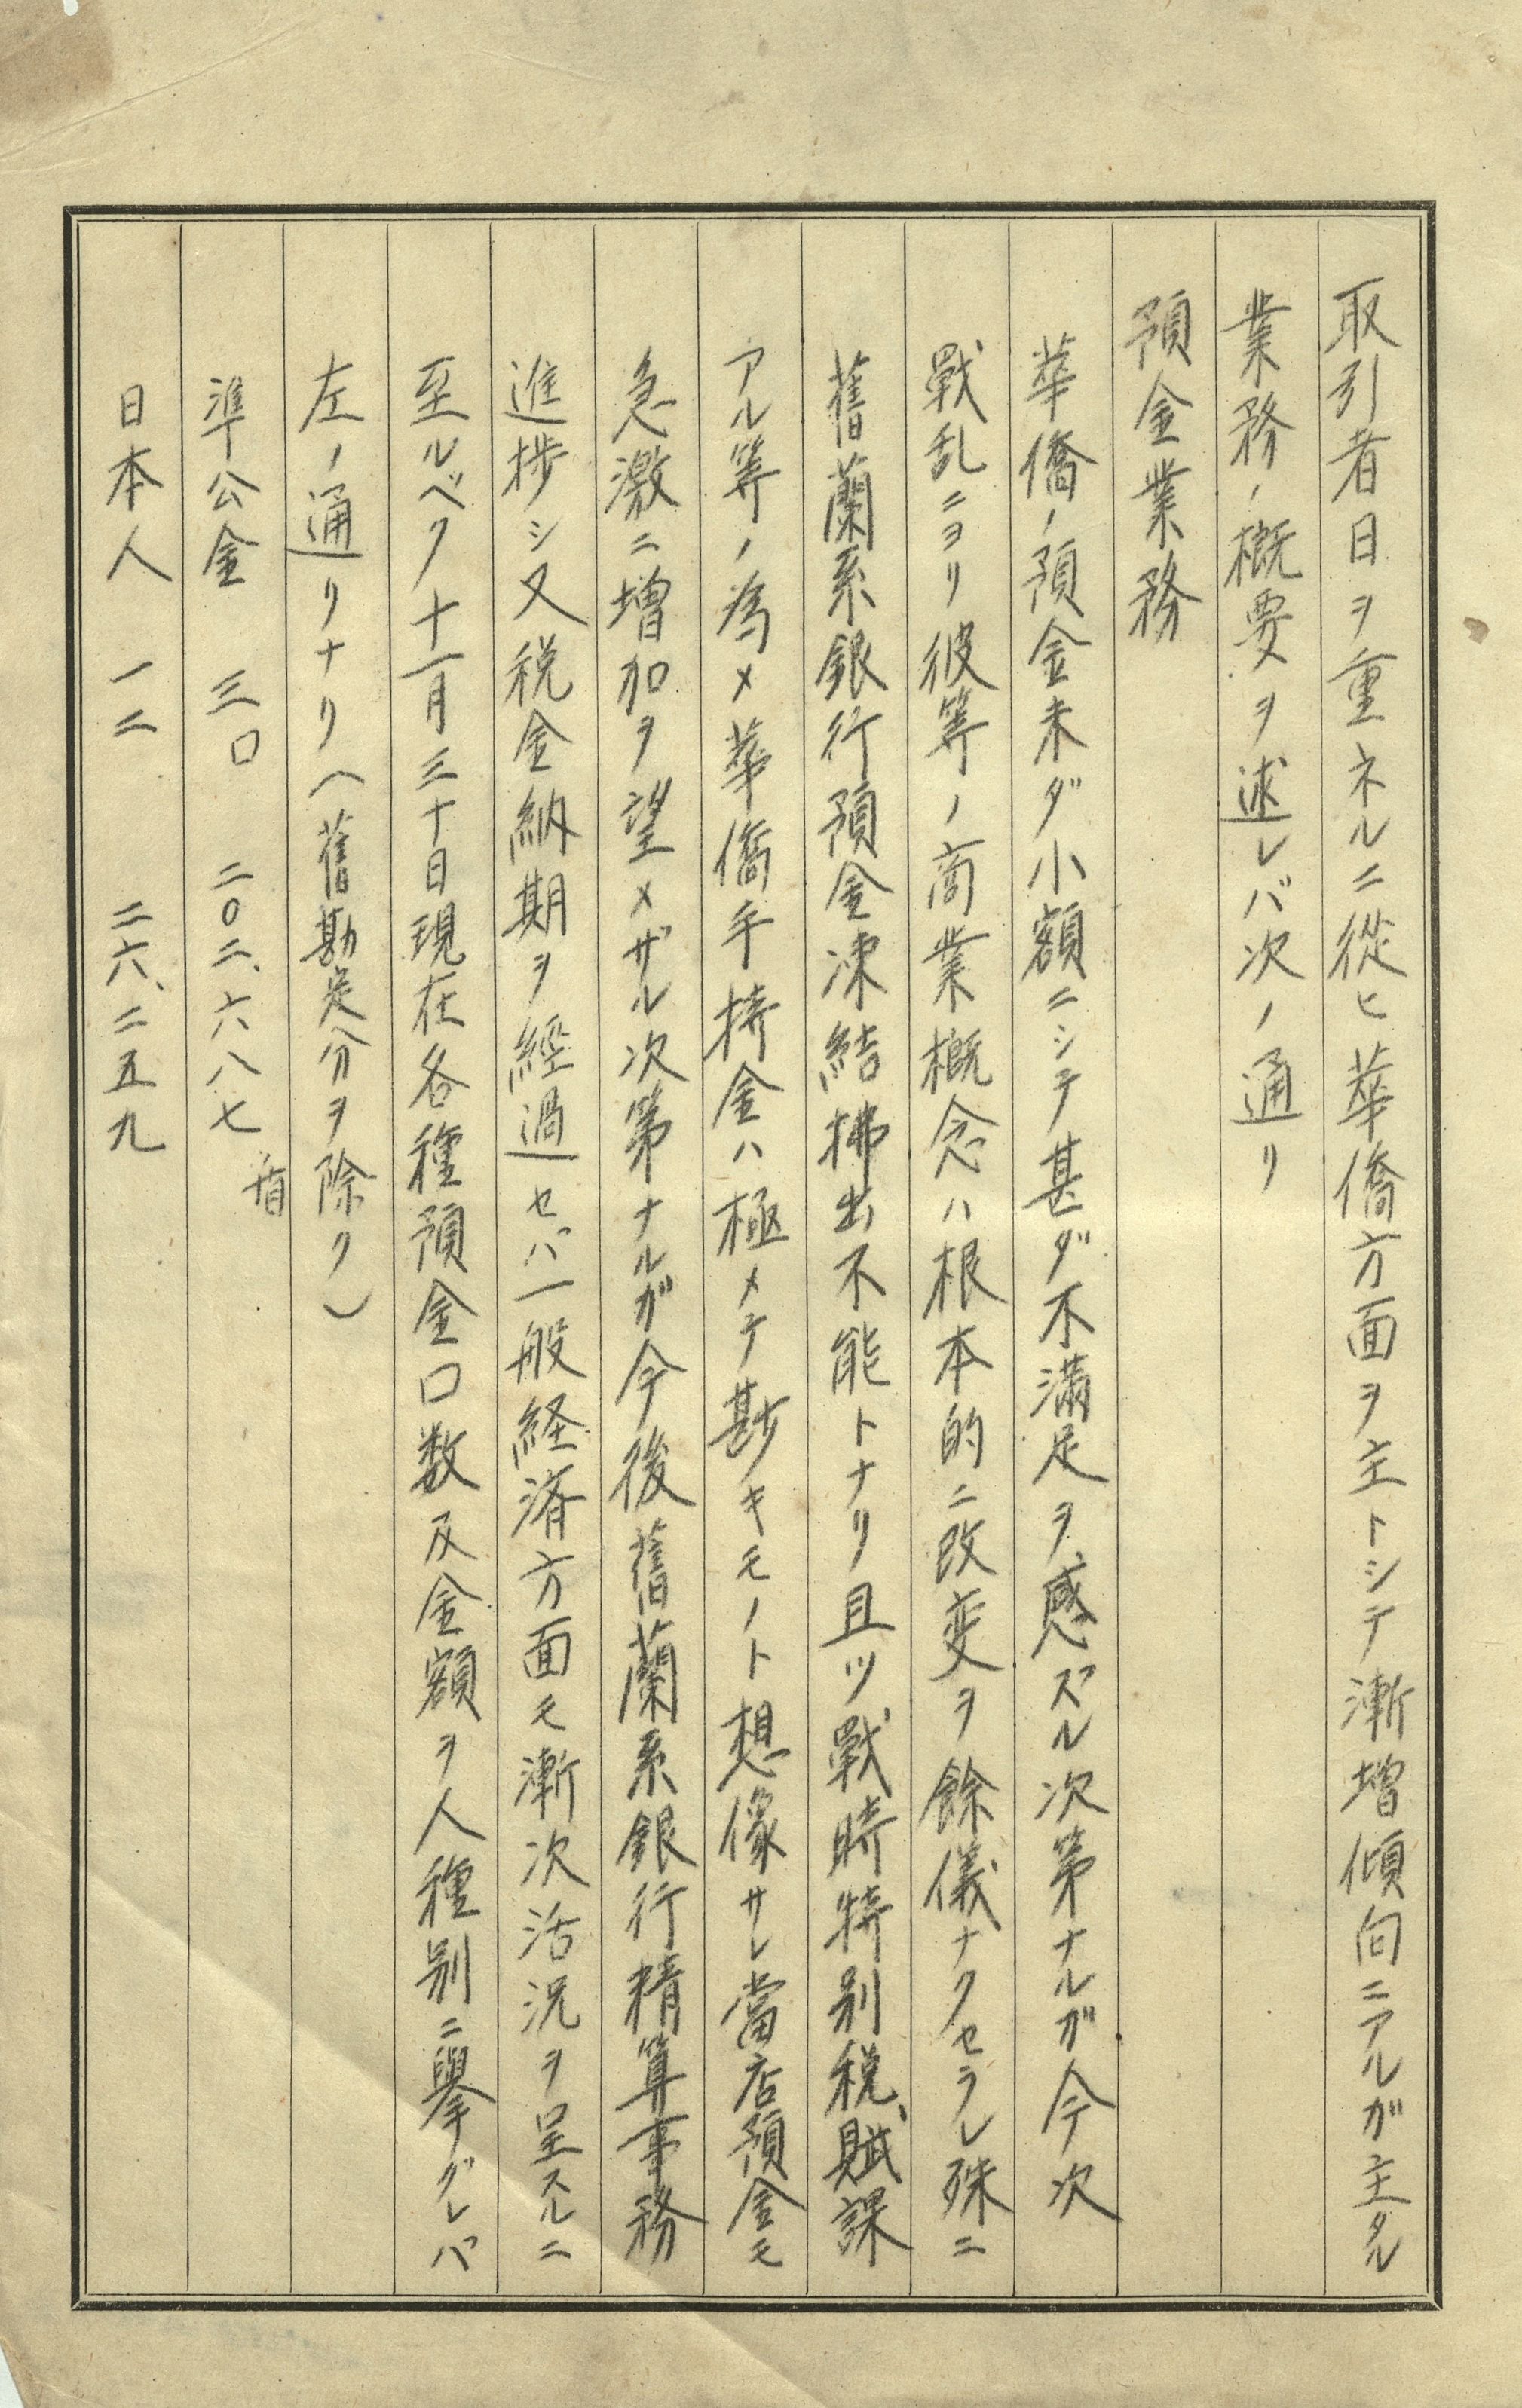 取引者日ヲ重ネルニ從ヒ華僑方面ヲ主トシテ漸増傾向ニアルガ主タル
業務ノ概要ヲ述レバ次ノ通リ
預金業務
華僑ノ預金未ダ小額ニシテ甚ダ不滿足ヲ感ズル次第ナルガ今次
戰乱ニヨリ彼等ノ商業概念ハ根本的ニ改変ヲ餘儀ナクセラレ殊ニ
舊蘭系銀行預金凍結拂出不能トナリ且ツ戰時特別税、賦課
アル等ノ為メ華僑手持金ハ極メテ尠キモノト想像サレ當店預金モ
急激ニ増加ヲ望メザル次第ナルガ今後舊蘭系銀行精算事務
進捗シ又税金納期ヲ經過セバ一般経済方面モ漸次活況ヲ呈スルニ
至ルベク十一月三十日現在各種預金口数及金額ヲ人種別ニ擧グレバ
左ノ通リナリ(舊勘定分ヲ除ク)
準公金 三口 二〇二、六八七盾
日本人 一二 二六、二五九